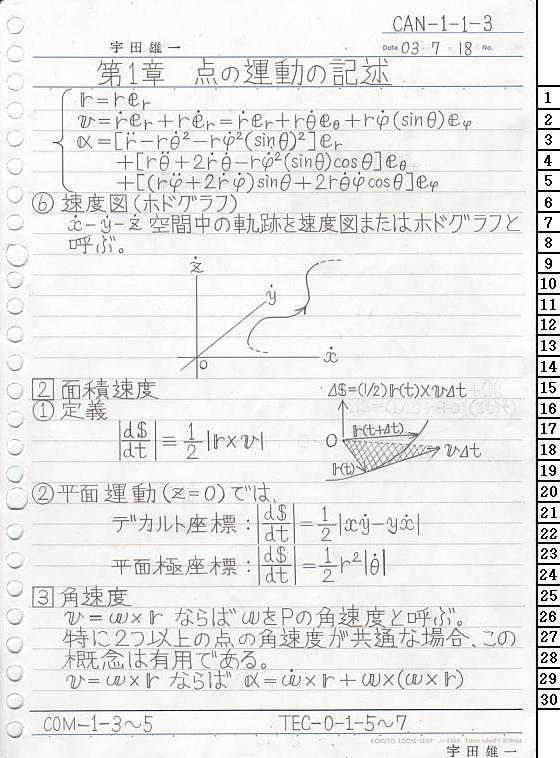 CAN-1-1-3
宇田雄一
Date 03・7・18 No.
第1章 点の運動の記述
𝕣=r𝕖r
𝕧=ṙ𝕖r+r𝕖̇r=ṙ𝕖r+rθ̇𝕖θ+rφ̇(sinθ)𝕖φ
𝕒=[r̈-rθ̇²-rφ̇²(sinθ)²]𝕖r
+[rθ̈+2ṙθ̇-rφ̇²(sinθ)cosθ]𝕖θ
+[(rφ̈+2ṙφ̇)sinθ+2rθ̇φ̇cosθ]𝕖φ
⑥ 速度図(ホドグラフ)
ẋ-ẏ-ż 空間中の軌跡を速度図またはホドグラフと
呼ぶ。
ż
ẏ
ẋ
0
2 面積速度
① 定義
|d𝕊/dt|≡1/2|𝕣×𝕧|
Δ𝕊=(1/2)𝕣(t)×𝕧Δt
𝕣(t+Δt)
O
𝕧Δt
𝕣(t)
② 平面運動(z=0)では、
デカルト座標:|d𝕊/dt|=1/2|xẏ-yẋ|
平面極座標:|d𝕊/dt|=1/2r²|θ̇|
3 角速度
𝕧=𝕨×𝕣 ならば𝕨をPの角速度と呼ぶ。
特に2つ以上の点の角速度が共通な場合、この
概念は有用である。
𝕧=𝕨×𝕣 ならば 𝕒=𝕨̇×𝕣+𝕨×(𝕨×𝕣)
COM-1-3~5 TEC-0-1-5~7
KOKUYO LOOSE-LEAF ノ-836A 7mm ruled×31lines
宇田雄一
1
2
3
4
5
6
7
8
9
10
11
12
13
14
15
16
17
18
19
20
21
22
23
24
25
26
27
28
29
30